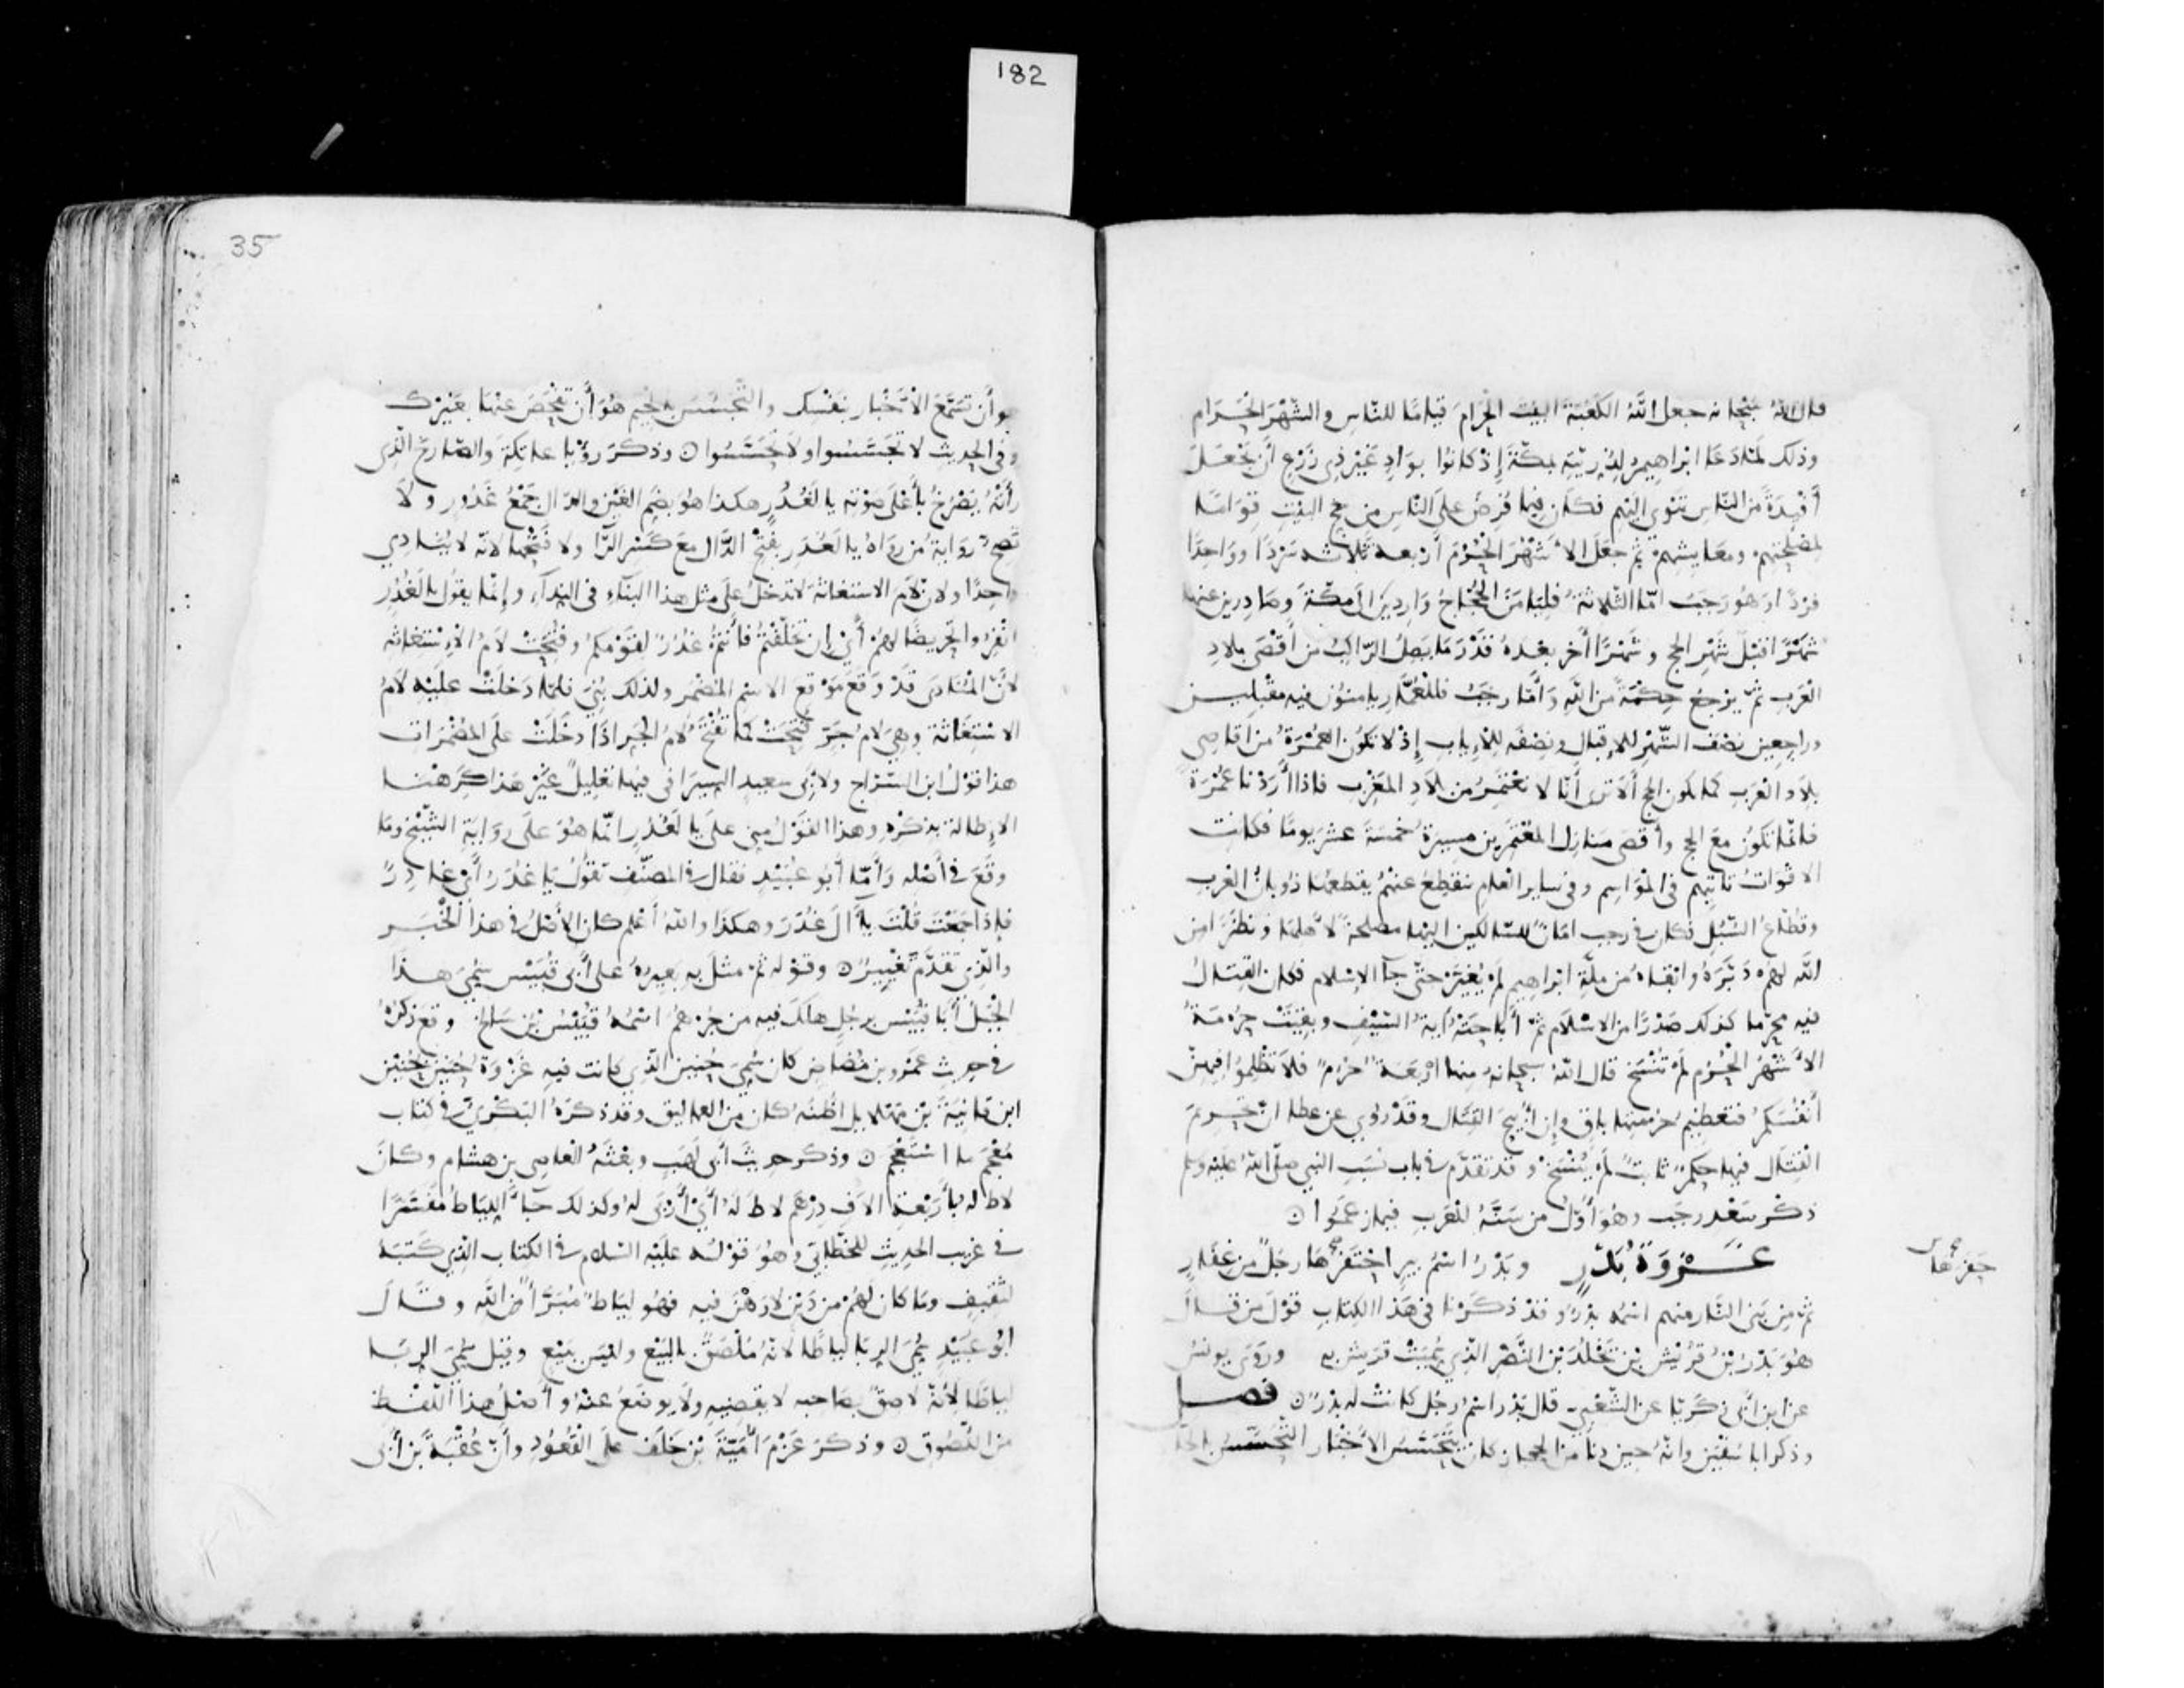 182
قال الله سبحانه جعل الله الكعبة البيت الحرام قياما للناس والشهر الحرام
وذلك لما دعا ابراهيم لذريته بمكة إذ كانوا بواد غير ذي زرع أن يجعل
أفئدة من الناس تهوي اليهم فكان فيما فرض على الناس من حج البيت قواما
لمصلحتهم ومعايشهم ثم جعل الأشهر الحرم أربعة ثلاثة سردا وواحدا
فردا وهو رجب اما الثلاثة فليأمن الحجاج واردين الى مكة وصادرين عنها
شهرا قبل شهر الحج وشهرا أخر بعده قدر ما يصل الراكب من أقصى بلاد
العرب ثم يرجع حكمة من الله وأما رجب فللعمار يامنون فيه مقبلين
وراجعين نصف الشهر للإقبال ونصفه للإياب إذ لا تكون العمرة من أقاصي
بلاد العرب كما يكون الحج ألا ترى أنا لا نعتمر من بلاد المغرب فإذا أردنا عمرة
فانما تكون مع الحج وأقصى منازل المعتمرين مسيرة خمسة عشر يوما فكانت
الاقوات تاتيهم في المواسم وفي ساير العام تنقطع عنهم يقطعها ذوبان العرب
وقطاع السبل فكان في رجب امان للسالكين اليها مصلحة لأهلها ونظرا من
الله لهم دبره وابقاه من ملة ابراهيم لم يغير حتى جآ الاسلام فكان القتال
فيه محرما كذلك صدرا من الاسلام ثم أباحته آية السيف وبقيت حرمة
الأشهر الحرم لم تنسخ قال الله سبحانه منها اربعة حرم فلا تظلموا فيهن
أنفسكم فتعظيم حرمتها باق وإن أبيح القتال وقد روي عن عطا ان تحريم
القتال فيها حكم ثابت لم ينسخ وقد تقدم في باب نسب النبي صلى الله عليه وسلم
ذكر سعد رجب وهو أول من سنه للعرب فيما زعموا
غزوة بدر وبدر اسم بير احتفرها رجل من غفار
حفرها صح
ثم من بني النار منهم اسمه بدر وقد ذكرنا في هذا الكتاب قول من قال
هو بدر بن قريش بن يخلد بن النضر الذي سميت قريش به وروى يونس
عن ابن أبي زكريا عن الشعبي قال بدر اسم رجل كانت له بدر فصل
وذكر ابا سفين وانه حين دنا من الحجاز كان يتحسس الأخبار التحسس بالحا
35
هو أن تتسمع الأخبار بنفسك والتجسس بالجيم هو أن تفحص عنها بغيرك
وفي الحديث لا تجسسوا ولا تحسسوا وذكر رؤيا عاتكة والصارخ الذي
رأته يصرخ بأعلى صوته يا لغدر هكذا هو بضم الغين والدال جمع غدور ولا
تصح رواية من رواه يا لغدر بفتح الدال مع كسر الرا ولا فتحها لانه لا ينادي
واحدا ولان لام الاستغاثة لا تدخل على مثل هذا البناء في النداء وإنما يقول يا لغدر
انفروا تحريضا لهم أي إن تخلفتم فأنتم غدر لقومكم وفتحت لام الاستغاثة
لأن المنادى قد وقع موقع الاسم المضمر ولذلك بني فلما دخلت عليه لام
الاستغاثة وهي لام جر فتحت كما تفتح لام الجر اذا دخلت على المضمرات
هذا قول ابن السراج ولابي سعيد السيرافي فيها تعليل غير هذا كرهنا
الإطالة بذكره وهذا القول مبني على يا لغدر انما هو على رواية الشيخ وما
وقع في أصله وأما أبو عبيد فقال في المصنف تقول يا غدر أي يا غادر
فإذا جمعت قلت يآل غدر وهكذا والله أعلم كان الأصل في هذا الخبر
والذي تقدم تغيير وقوله ثم مثل به بعيره على أبي قبيس سمي هذا
الجبل أبا قبيس برجل هلك فيه من جرهم اسمه قبيس بن شالخ وقع ذكره
في حديث عمرو بن مضاض كان سمي حنين الذي كانت فيه غزوة حنين بحنين
ابن قانية بن مهلايل اظنه كان من العماليق وقد ذكره البكري في كتاب
معجم ما استعجم وذكر حديث أبي لهب وبعثه العاصي بن هشام وكان
لاط له بأربعة الاف درهم لاط له أي أربى له وكذلك جآ اللياط مفسرا
في غريب الحديث للخطابي وهو قوله عليه السلام في الكتاب الذي كتبه
لثقيف وما كان لهم من دين لا رهن فيه فهو لياط مبرأ من الله وقال
ابو عبيد سمي الربا لياطا لانه ملصق بالبيع وليس ببيع وقيل سمي الربا
لياطا لأنه لاصق بصاحبه لا يقضيه ولا يوضع عنه وأصل هذا اللفظ
من اللصوق وذكر عزم أمية بن خلف على القعود وأن عقبة بن أبي